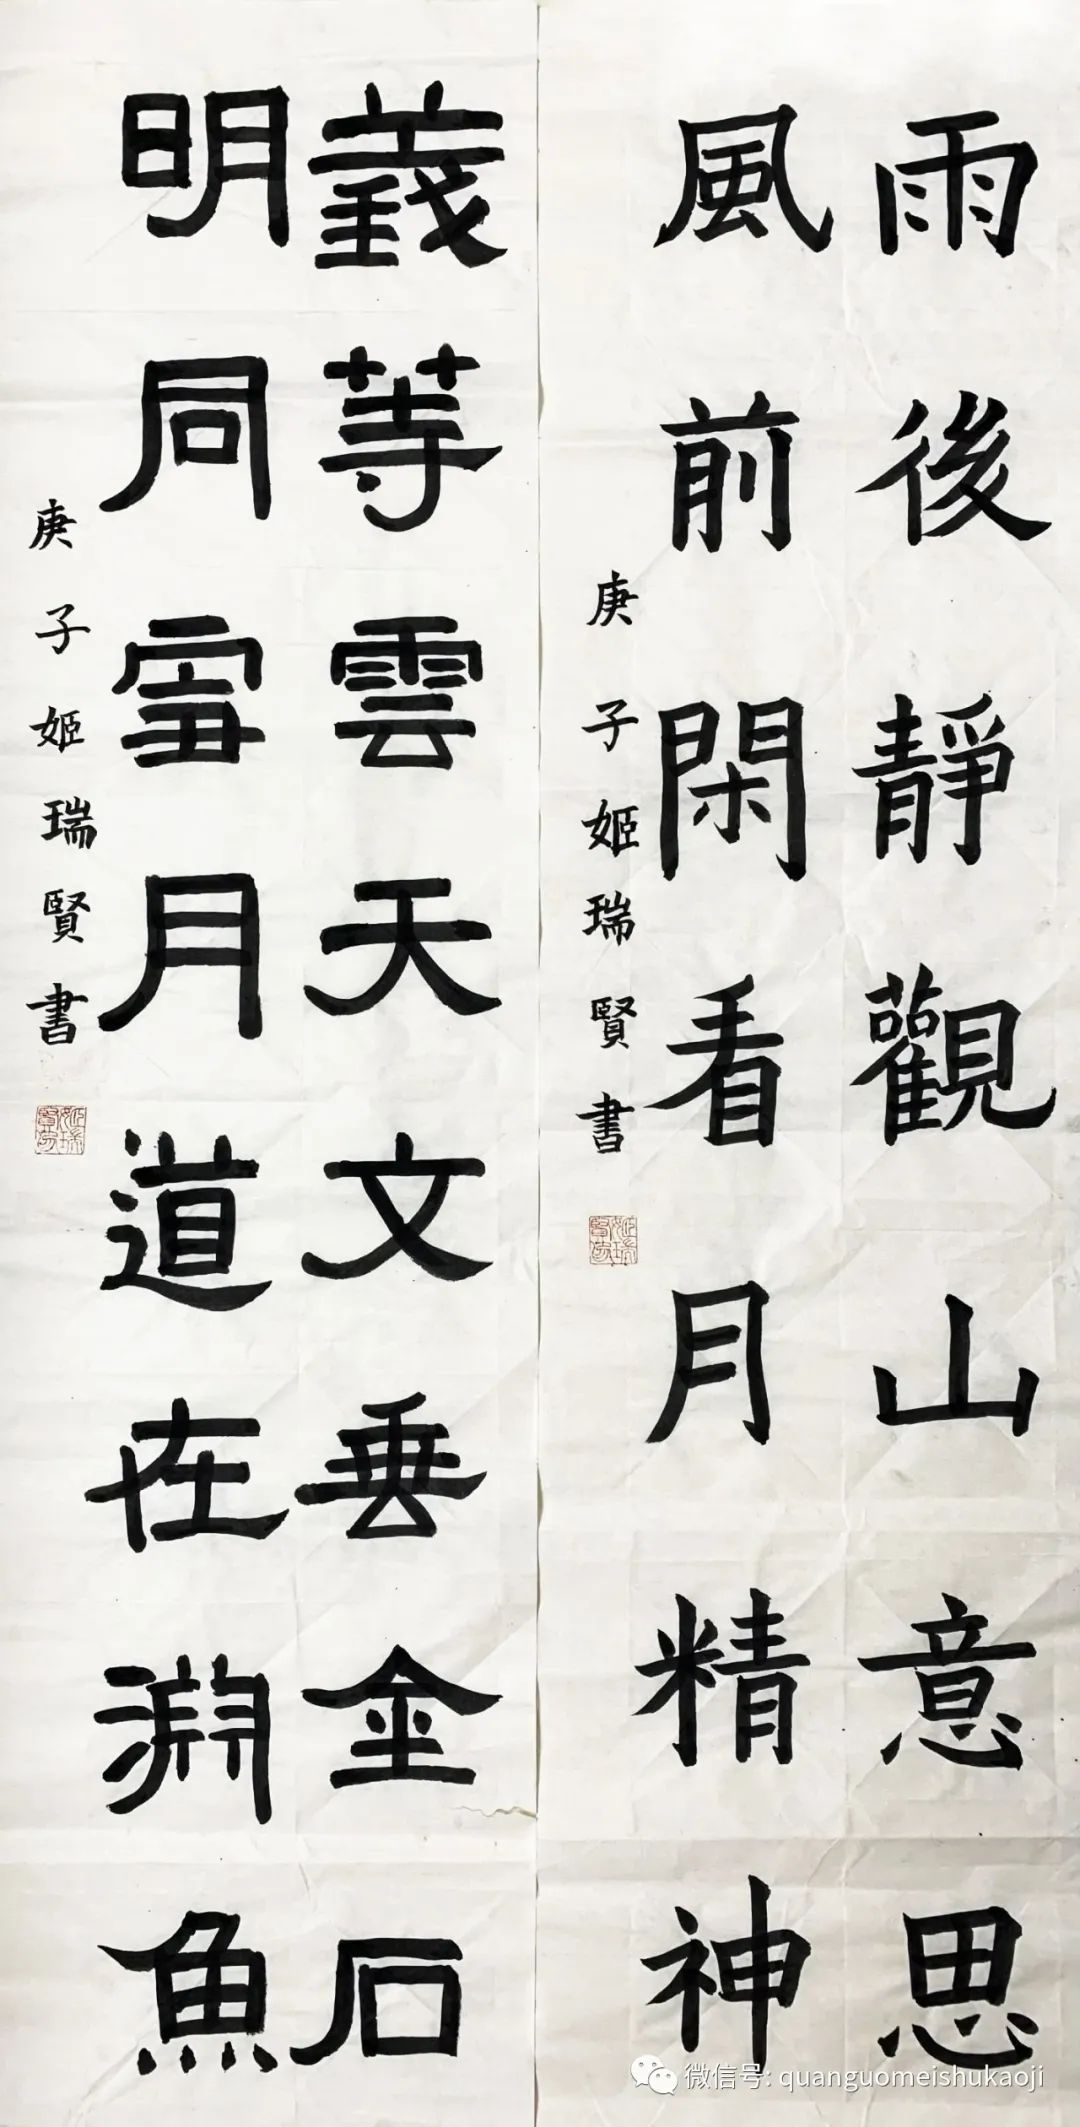 雨後靜觀山意思
風前閑看月精神
庚子姬瑞賢書
義等雲天文垂金石
明同雪月道在淵魚
庚子姬瑞賢書
微信号: quanguomeishukaoji